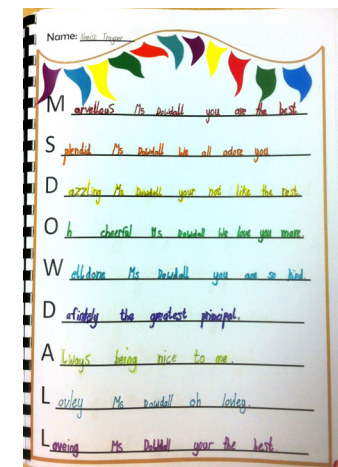 Name: Traynor
Marvellous Ms Dowdall you are the best.
Splendid Ms Dowdall We all adore you
Dazzling Ms Dowdall your not like the rest.
Oh cheerful Ms Dowdall We love you more.
Welldone Ms Dowdall you are so kind.
Dafinitely the greatest principal.
Always being nice to me.
Lovley Ms Dowdall oh lovley.
Loveing Ms Dowdall your the best.